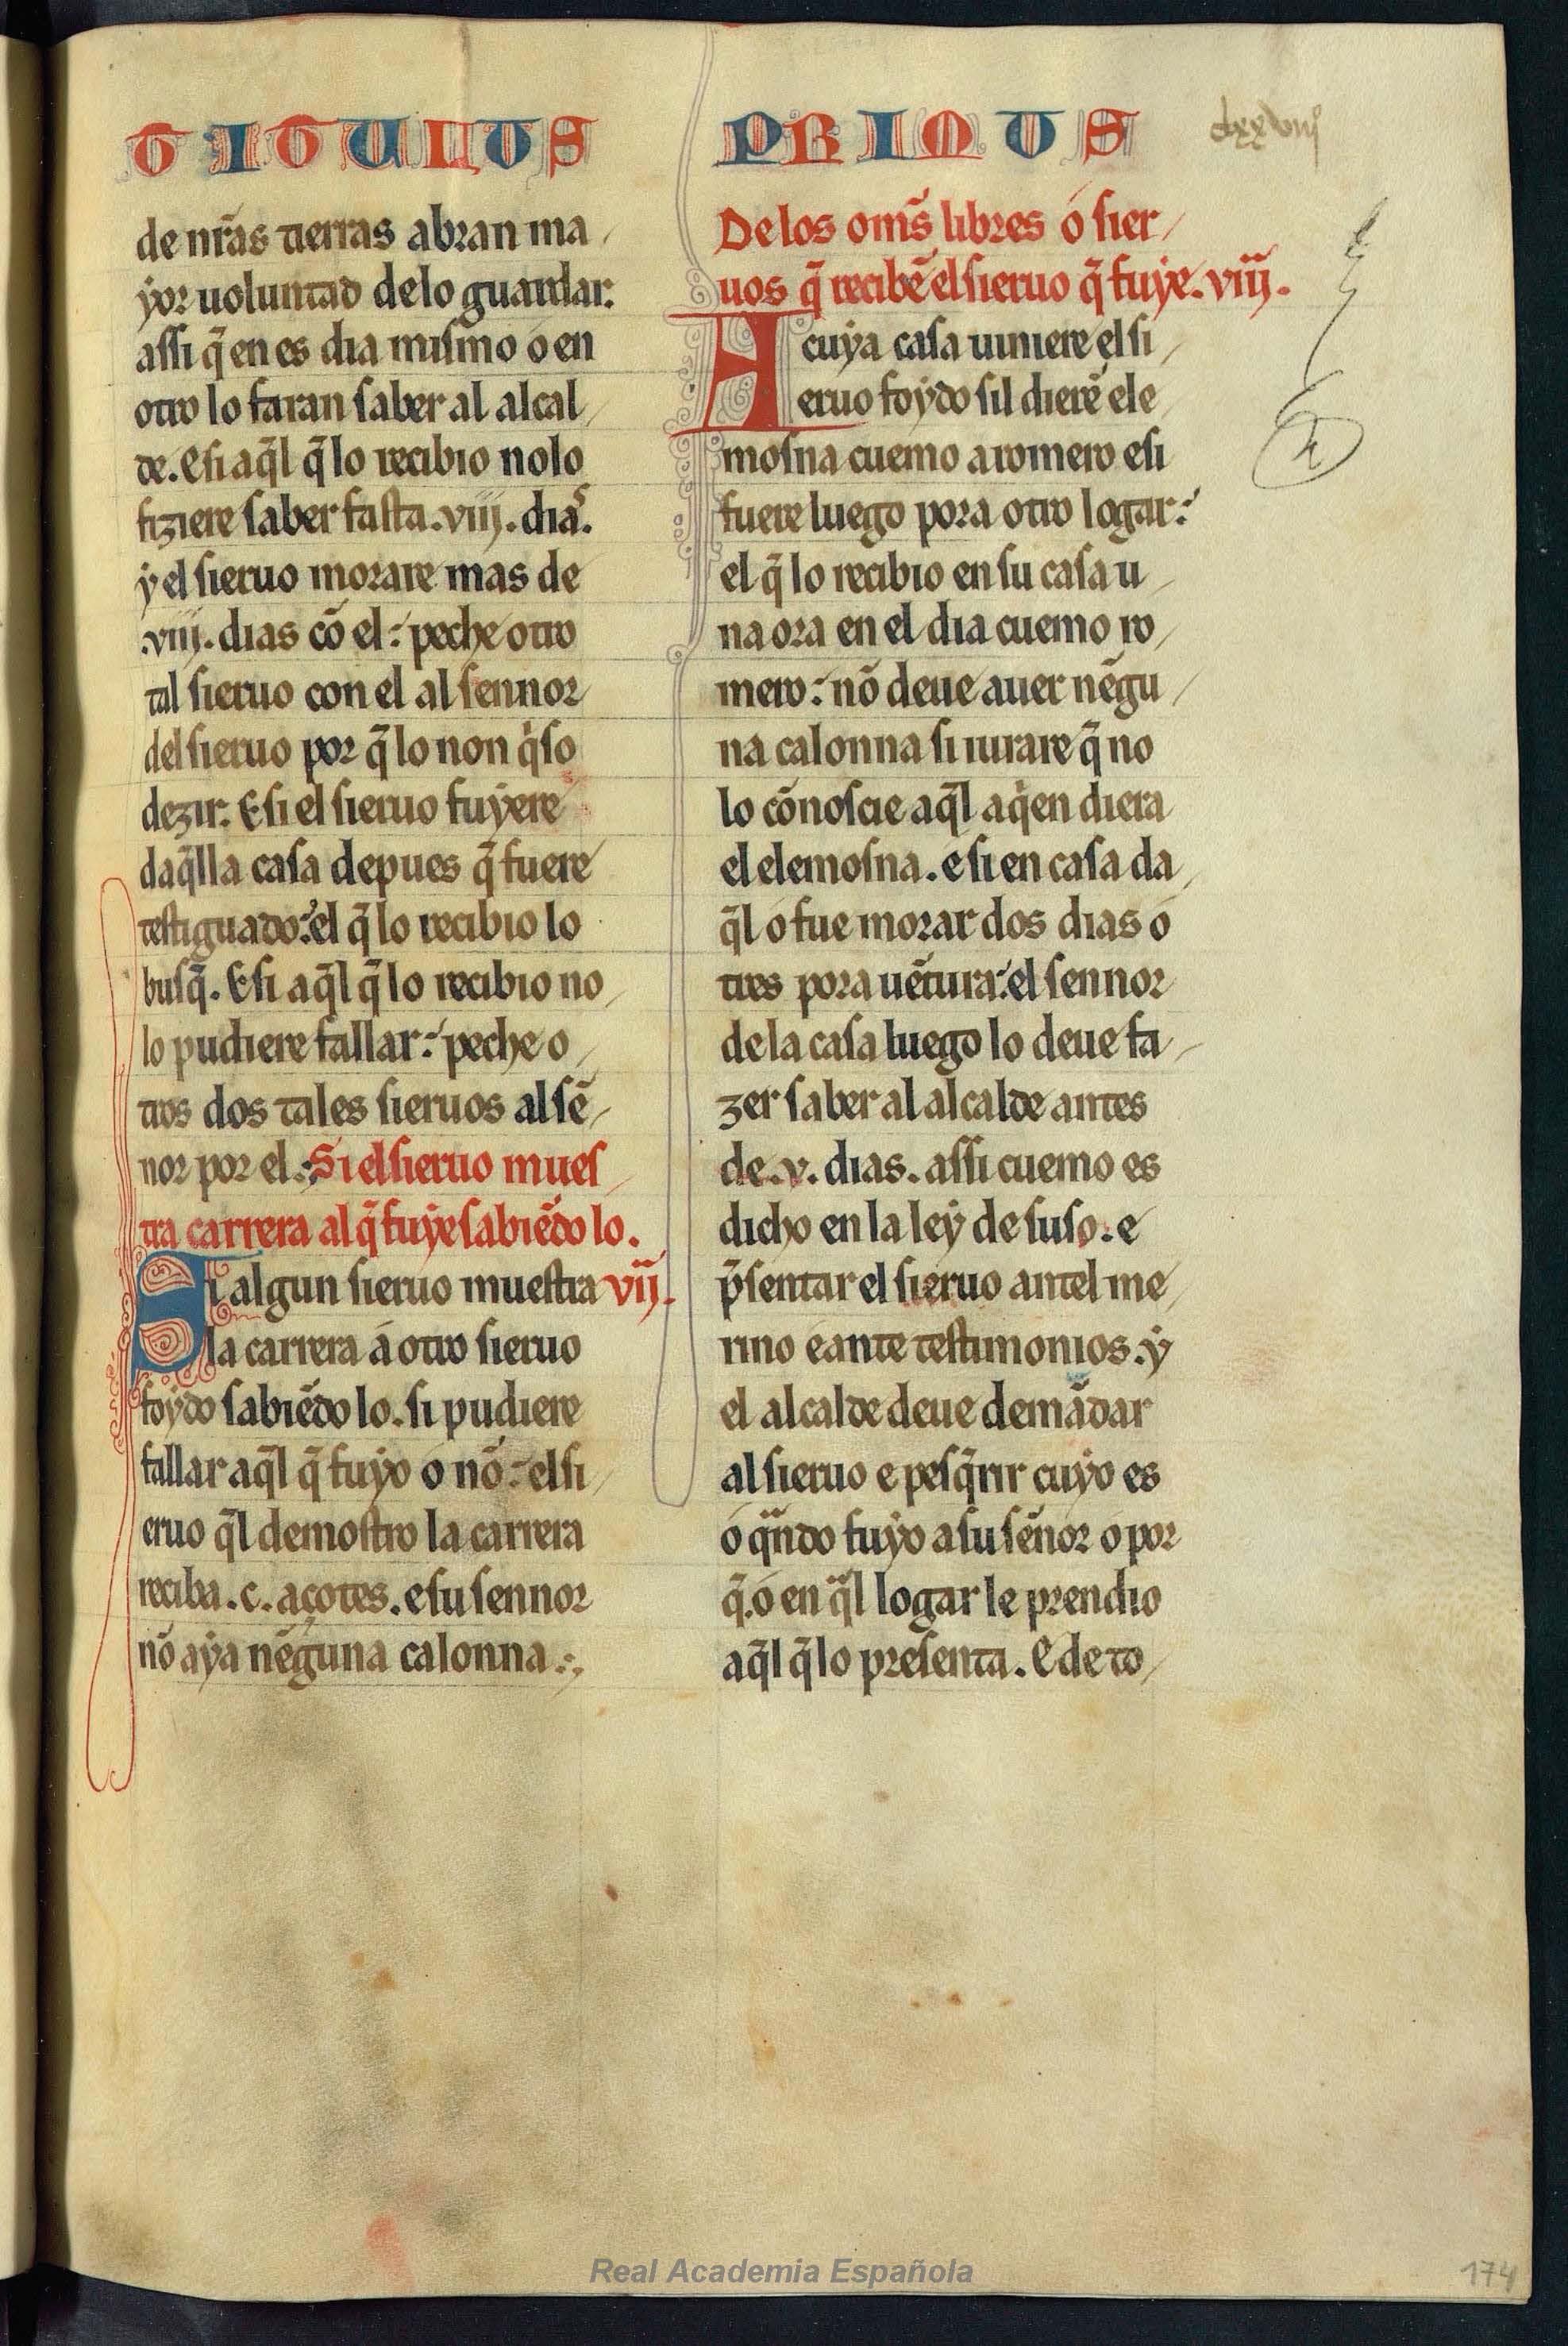 TITULUS PRIMUS
clxxviiij
de nr̃as tierras abran ma
yor uoluntad delo guardar.
assi q̃ en es dia mismo o en
otro lo faran saber al alcal
de. E si aq̃l q̃ lo recibio nolo
fiziere saber fasta .viij. dias.
y el sieruo morare mas de
.viij. dias cõ el: peche otro
tal sieruo con el al sennor
del sieruo por q̃ lo non qiso
dezir. E si el sieruo fuyere
daq̃lla casa depues q̃ fuere
testiguado: el q̃ lo recibio lo
busq̃. E si aq̃l q̃ lo recibio no
lo pudiere fallar: peche o
tros dos tales sieruos al sẽ
nor por el. Si el sieruo mues
tra carrera al q̃ fuye sabiẽdo lo.
Si algun sieruo muestra vij.
la carrera á otro sieruo
foydo sabiẽdo lo. si pudiere
fallar aq̃l q̃ fuyo o nõ: el si
eruo q̃l demostro la carrera
reciba .c. açotes. e su sennor
nõ aya nẽguna calonna.
De los om̃s libres ó sier
uos q̃ recibẽ el sieruo q̃ fuye. viij.
A cuya casa uiniere el si
eruo foydo sil dierẽ ele
mosna cuemo a romero e si
fuere luego pora otro logar:
el q̃ lo recibio en su casa u
na ora en el dia cuemo ro
mero: nõ deue auer nẽgu
na calonna si iurare q̃ no
lo cõnoscie aq̃l aqien diera
el elemosna. e si en casa da
q̃l o fue morar dos dias o
tres por a uẽtura: el sennor
de la casa luego lo deue fa
zer saber al alcalde antes
de .v. dias. assi cuemo es
dicho en la ley de suso. e
p̃sentar el sieruo antel me
rino e ante testimonios. y
el alcalde deue demãdar
al sieruo e pesq̃rir cuyo es
o qũdo fuyo a su sẽnor o por
q̃. o en q̃l logar le prendio
aq̃l q̃ lo presenta. E de to
Real Academia Española
174